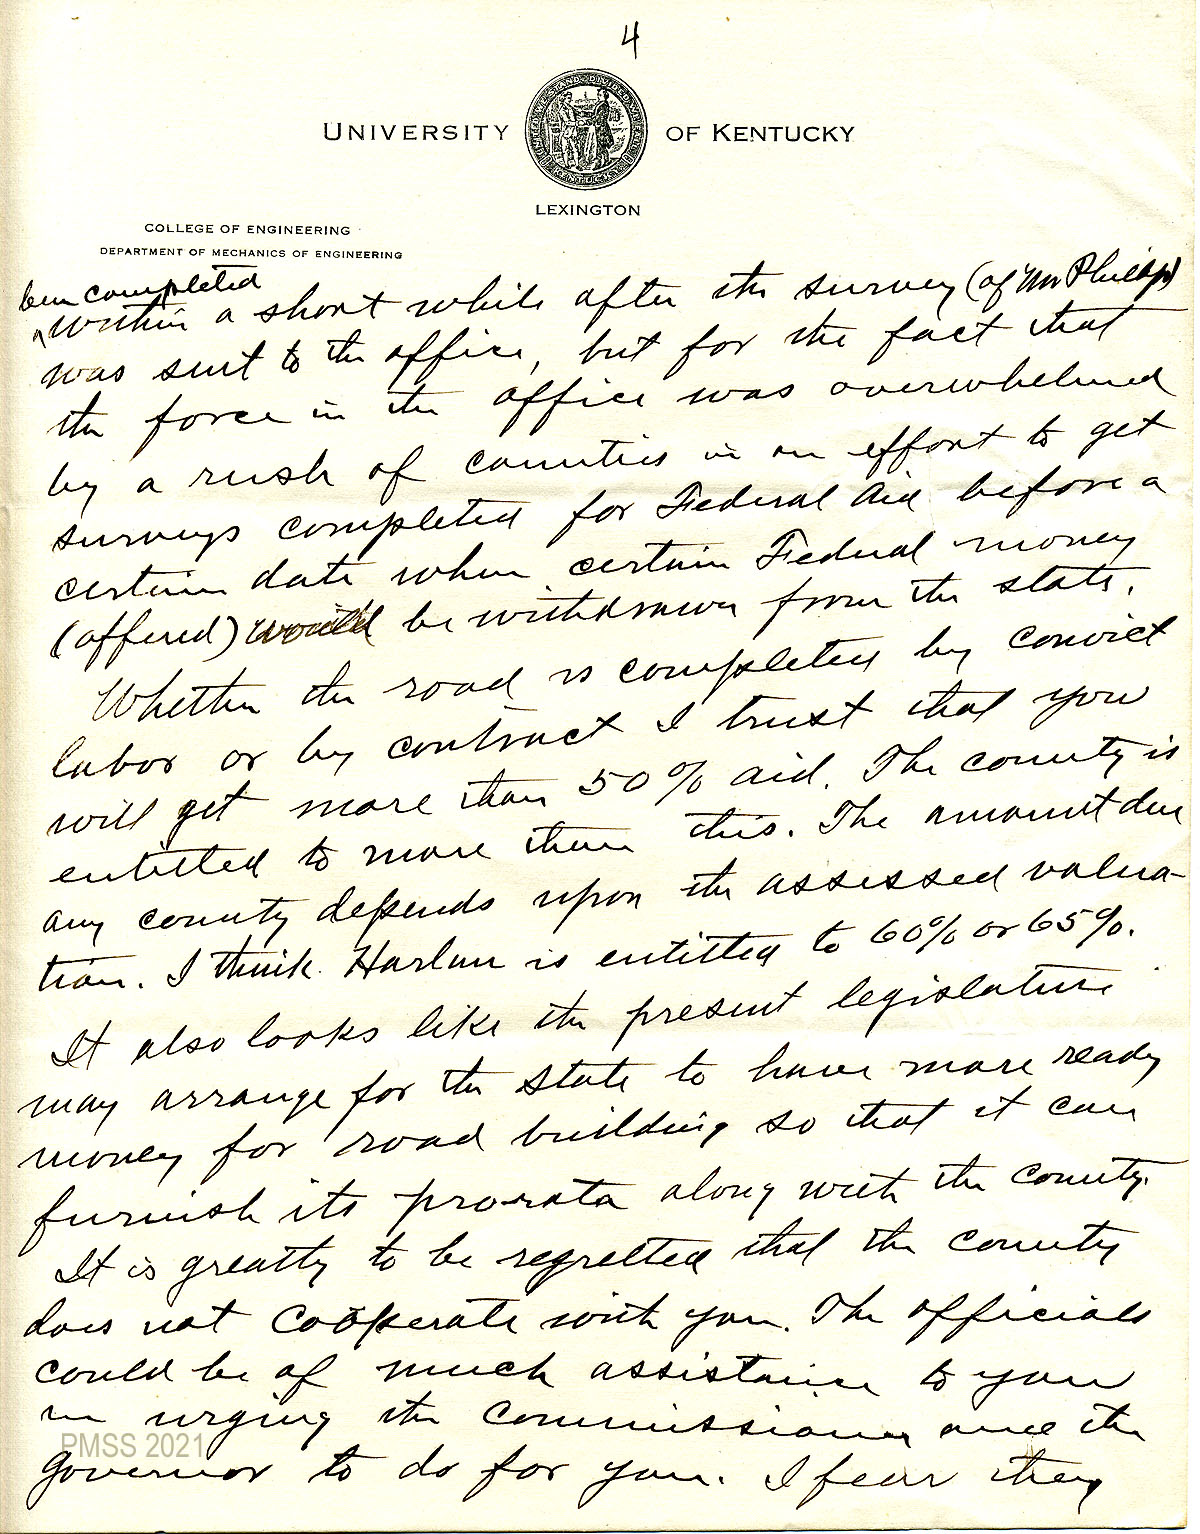 4
UNIVERSITY OF KENTUCKY
LEXINGTON
COLLEGE OF ENGINEERING
DEPARTMENT OF MECHANICS OF ENGINEERING
been completed
^within a short while after the survey (of Mr Philips)
was sent to the office, but for the fact that
the force in the office was overwhelmed
by a rush of counties in an effort to get
surveys completed for Federal Aid before a
certain date when certain Federal money
(offered) would be withdrawn from the state.
Whether the road is completed by convict
labor or by contract I trust that you
will get more than 50% aid. The county is
entitled to more than this. The amount due
any county depends upon the assessed valua-
tion. I think Harlan is entitled to 60% or 65%.
It also looks like the present legislature
may arrange for the state to have more ready
money for road building so that it can
furnish its pro-rata along with the county.
It is greatly to be regretted that the county
does not coöperate with you. The officials
could be of much assistance to you
in urging the commissioner and the
governor to do for you. I fear they
PMSS 2021